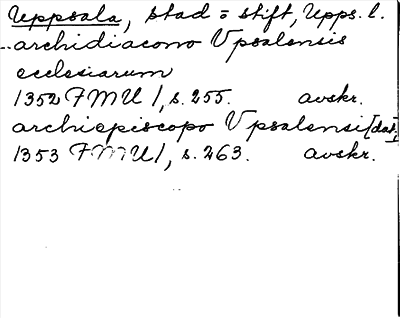 Uppsala, stad = stift, Upps. l.
..archidiacono Vpsalensis
ecclesiarum
1352 FMU 1, s. 255. avskr.
archiepiscopo Vpsalensi [dat.]
1353 FMU 1, s. 263. avskr.